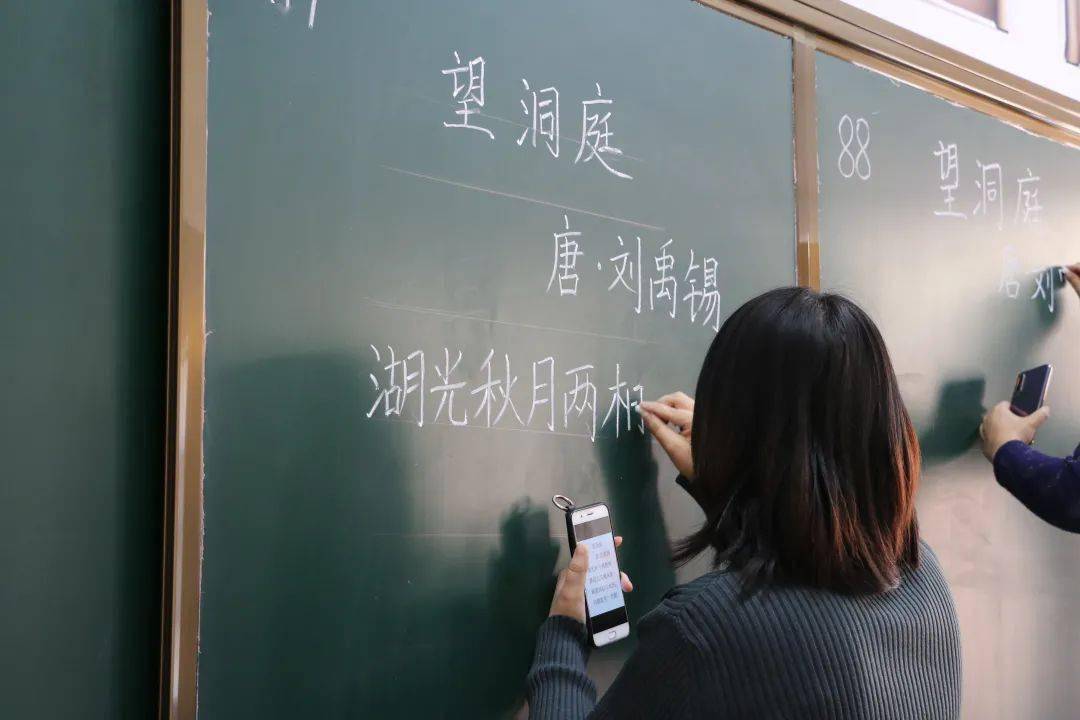 望洞庭
唐·刘禹锡
湖光秋月两相
88
望洞庭
唐 刘